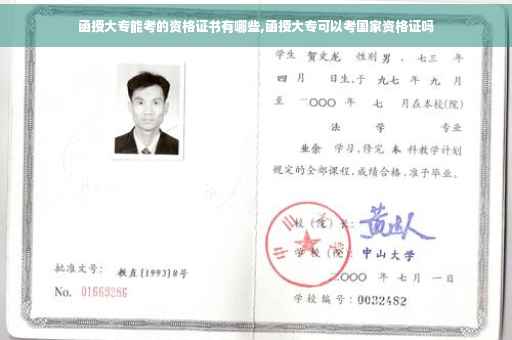 函授大专能考的资格证书有哪些,函授大专可以考国家资格证吗
学生 贺文龙 性别 男 、七三 年
四 月 日生,于 九七 年 九 月
至 二〇〇〇 年 七 月在本校(院)
法 学 专业
业余 学习,修完 本 科教学计划
规定的全部课程,成绩合格,准予毕业。
校(院)长:
学 校(院): 中山大学
二〇〇〇 年 七 月 一 日
学校编号:0032482
批准文号: 教直(1993)8号
No. 01669286